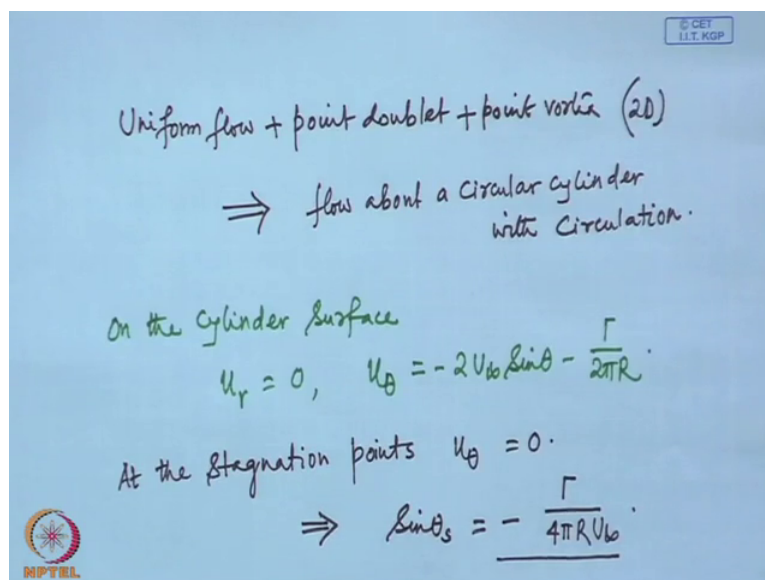 © CET
I.I.T. KGP
Uniform flow + point doublet + point vortex (2D)
⇒ flow about a circular cylinder
with circulation.
On the cylinder surface
u_r = 0, u_θ = -2 U_∞ Sinθ - Γ/2πR.
At the stagnation points u_θ = 0.
⇒ Sinθ_s = - Γ/4πRU_∞.
NPTEL